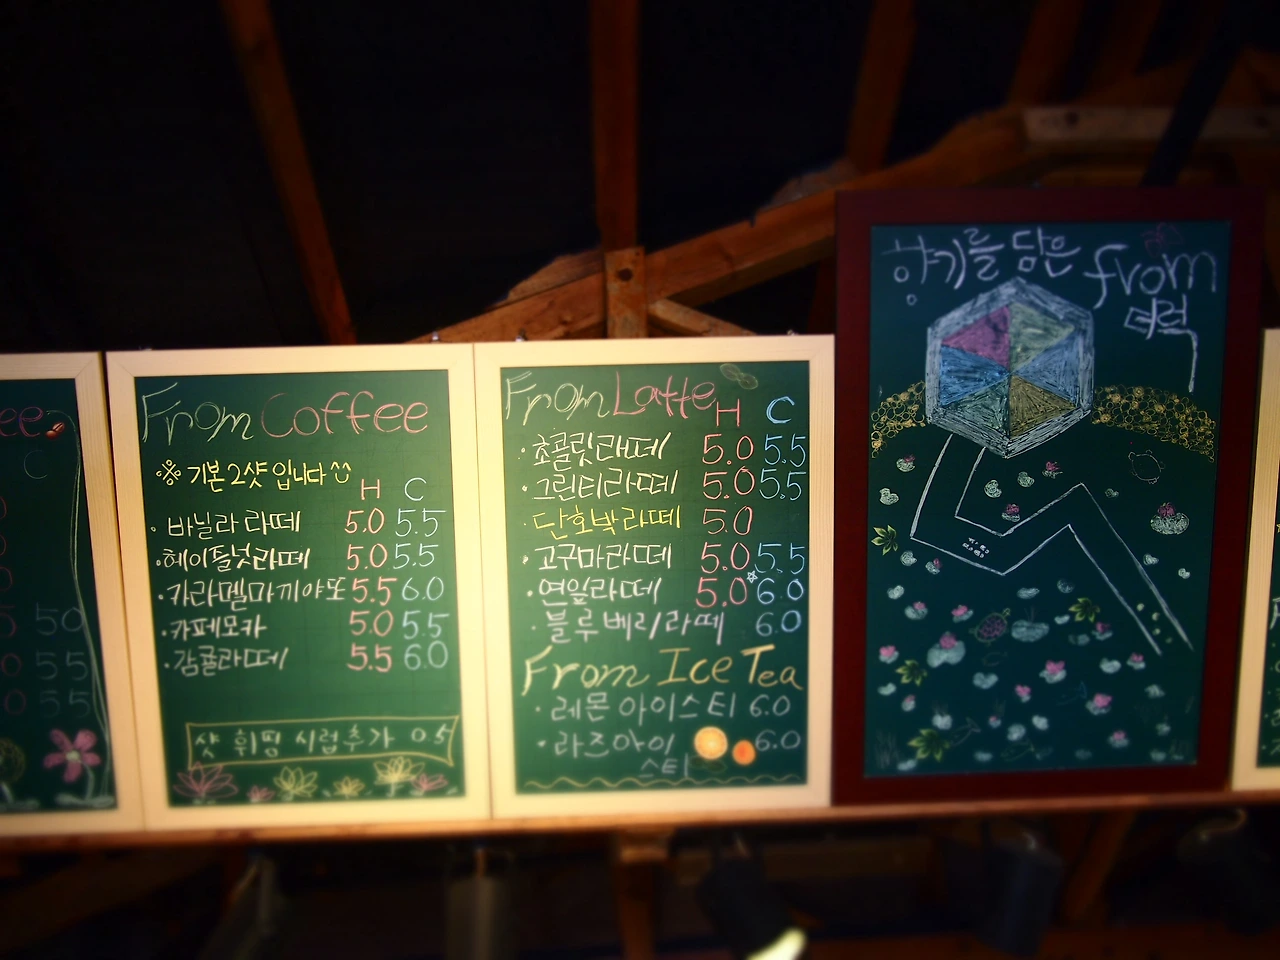 ee
C
50
55
50
From Coffee
※ 기본 2샷 입니다
H C
· 바닐라 라떼 5.0 5.5
· 헤이즐넛라떼 5.0 5.5
· 카라멜마끼야또 5.5 6.0
· 카페모카 5.0 5.5
· 감귤라떼 5.5 6.0
샷 휘핑 시럽추가 0.5
From Latte
H C
· 초콜릿라떼 5.0 5.5
· 그린티라떼 5.0 5.5
· 단호박라떼 5.0
· 고구마라떼 5.0 5.5
· 연잎라떼 5.0 6.0
· 블루베리라떼 6.0
From Ice Tea
· 레몬 아이스티 6.0
· 라즈아이스티 6.0
향기를 담은 from
더럭